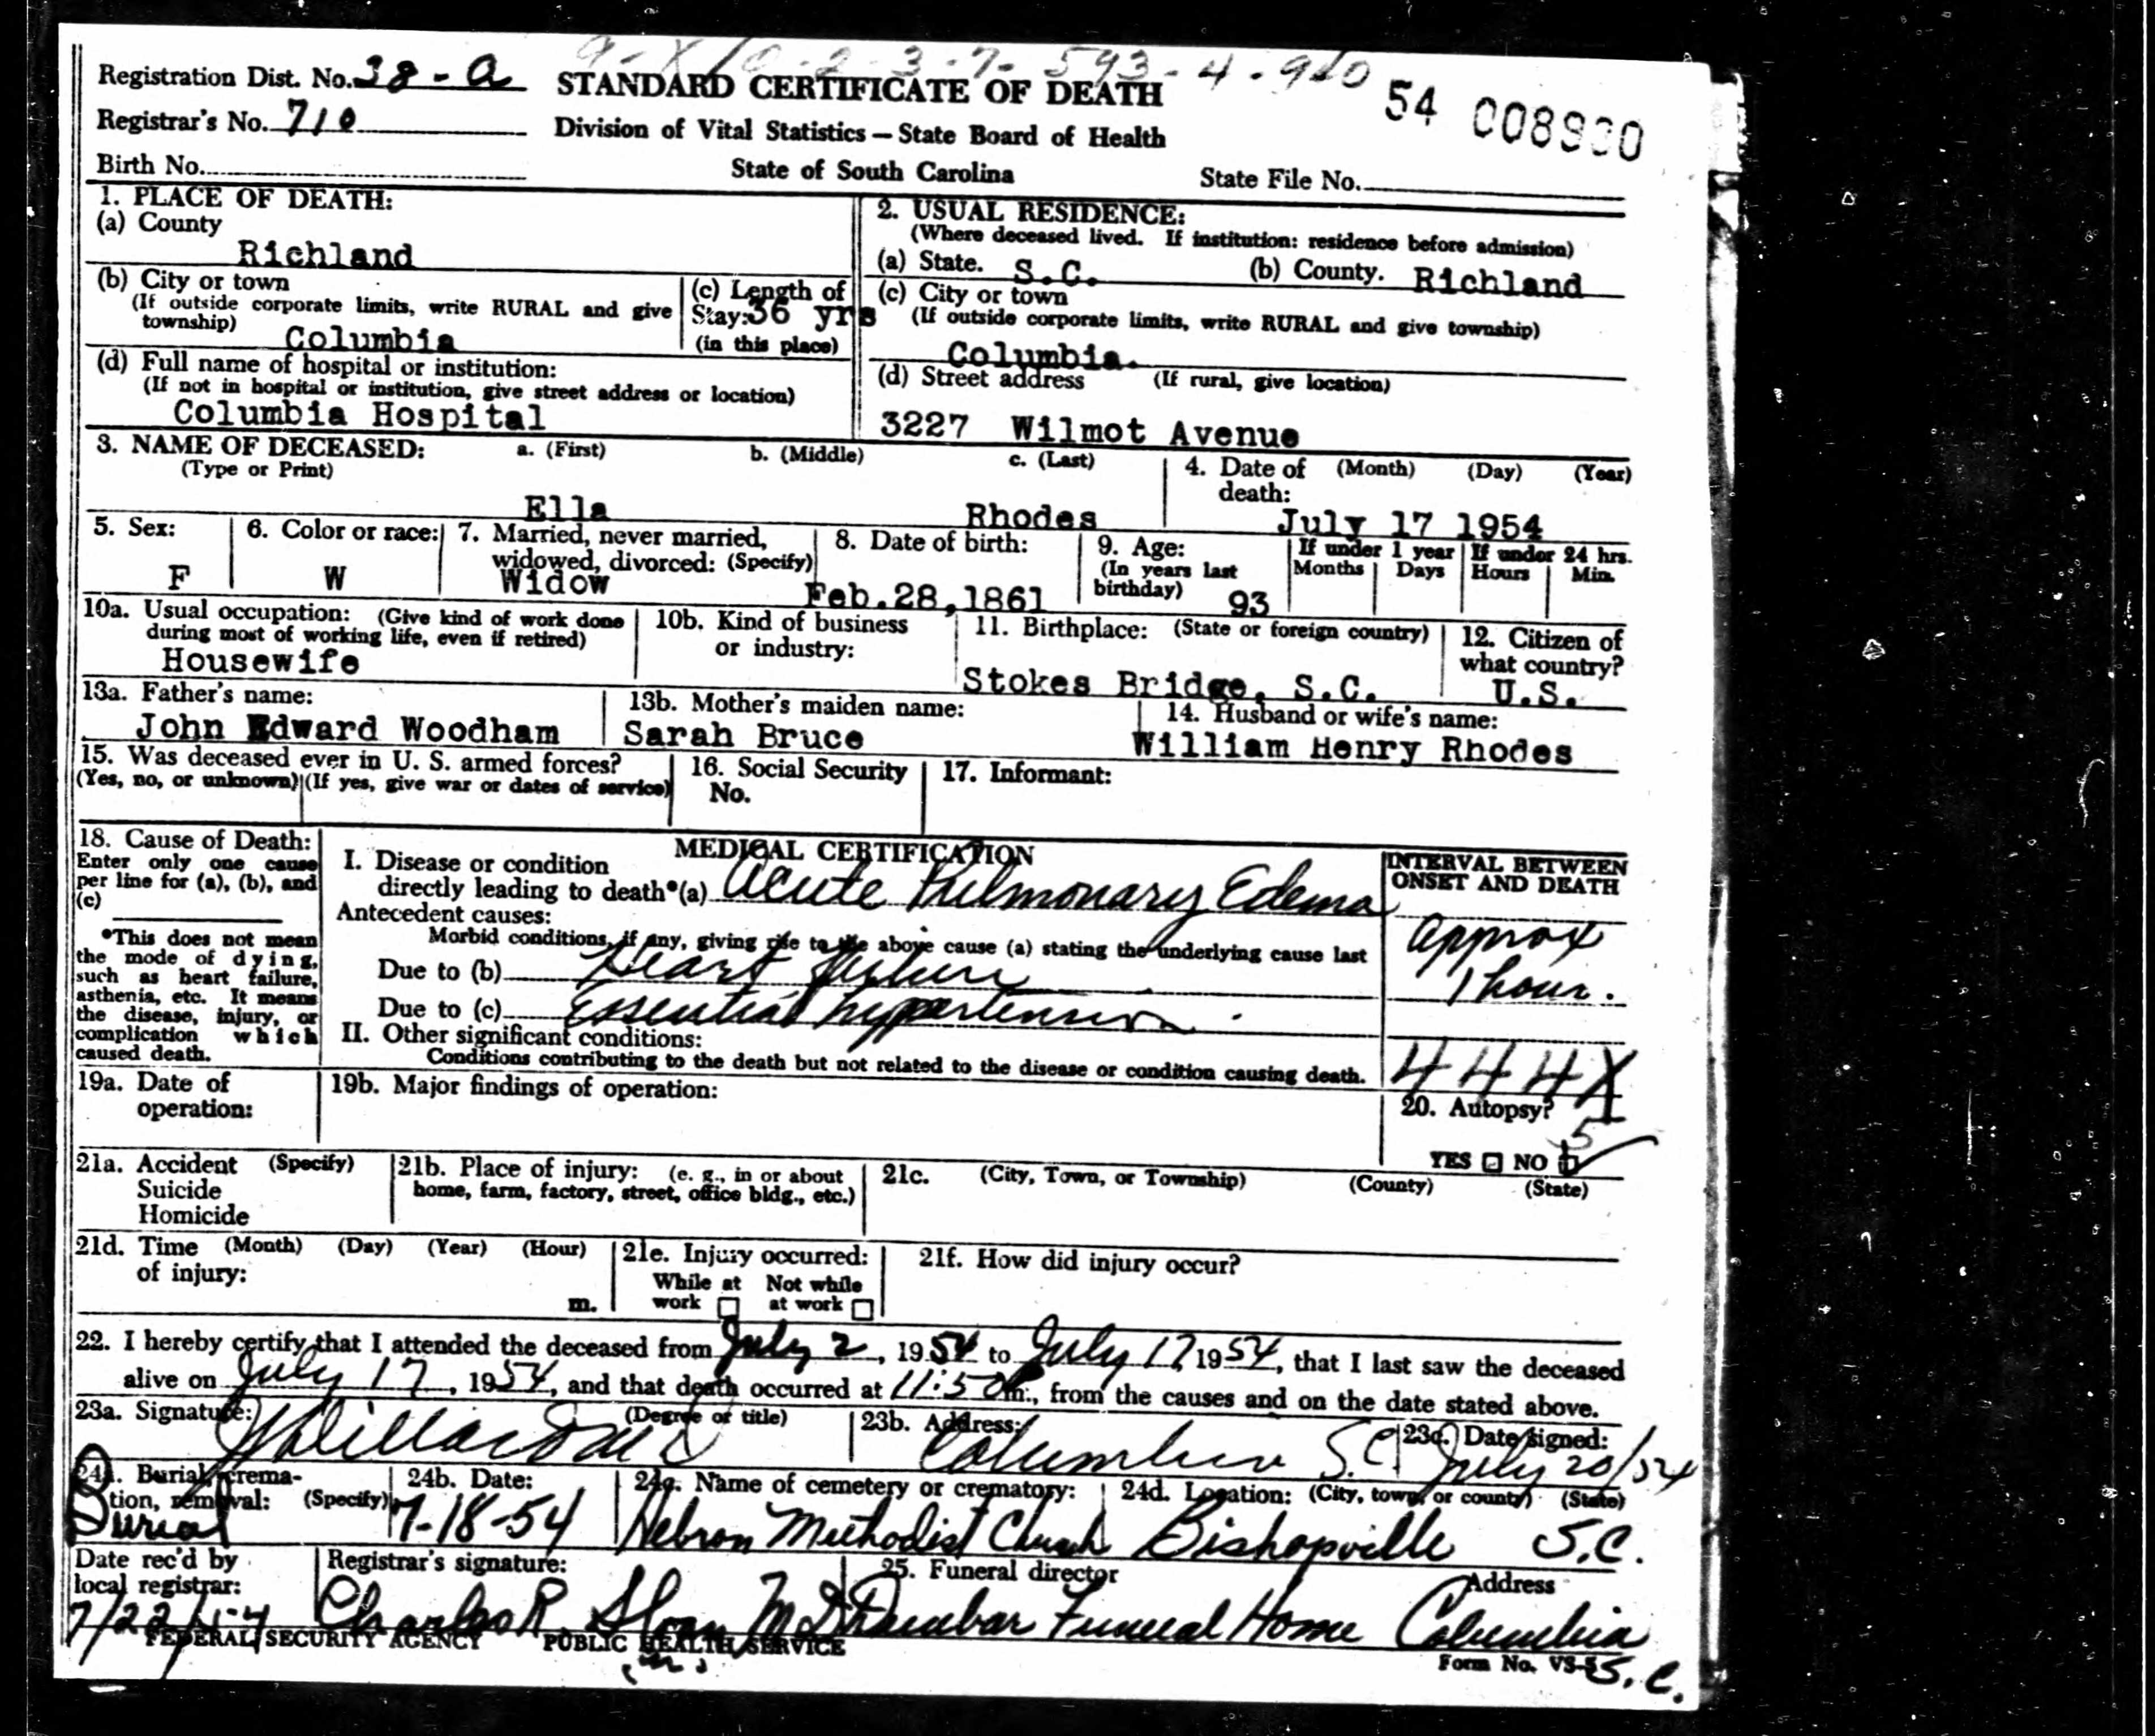 9-X/0-2-3-7-593-4-940
Registration Dist. No. 38-a STANDARD CERTIFICATE OF DEATH 54 008930
Registrar's No. 710 Division of Vital Statistics — State Board of Health
Birth No. State of South Carolina State File No.
1. PLACE OF DEATH:
(a) County
Richland
(b) City or town
(If outside corporate limits, write RURAL and give
township) Columbia
(c) Length of
Stay: 36 yrs
(in this place)
(d) Full name of hospital or institution:
(If not in hospital or institution, give street address or location)
Columbia Hospital
2. USUAL RESIDENCE:
(Where deceased lived. If institution: residence before admission)
(a) State. S.C. (b) County. Richland
(c) City or town
(If outside corporate limits, write RURAL and give township)
Columbia.
(d) Street address (If rural, give location)
3227 Wilmot Avenue
3. NAME OF DECEASED: a. (First) b. (Middle) c. (Last)
(Type or Print)
Ella Rhodes
4. Date of (Month) (Day) (Year)
death:
July 17 1954
5. Sex:
F
6. Color or race:
W
7. Married, never married,
widowed, divorced: (Specify)
Widow
8. Date of birth:
Feb.28,1861
9. Age:
(In years last
birthday) 93
If under 1 year
Months Days
If under 24 hrs.
Hours Min.
10a. Usual occupation: (Give kind of work done
during most of working life, even if retired)
Housewife
10b. Kind of business
or industry:
11. Birthplace: (State or foreign country)
Stokes Bridge, S.C.
12. Citizen of
what country?
U.S.
13a. Father's name:
John Edward Woodham
13b. Mother's maiden name:
Sarah Bruce
14. Husband or wife's name:
William Henry Rhodes
15. Was deceased ever in U. S. armed forces?
(Yes, no, or unknown) (If yes, give war or dates of service)
16. Social Security
No.
17. Informant:
18. Cause of Death:
Enter only one cause
per line for (a), (b), and
(c)
*This does not mean
the mode of dying,
such as heart failure,
asthenia, etc. It means
the disease, injury, or
complication which
caused death.
MEDICAL CERTIFICATION
I. Disease or condition
directly leading to death*(a) Acute Pulmonary Edema
Antecedent causes:
Morbid conditions, if any, giving rise to the above cause (a) stating the underlying cause last
Due to (b) Heart failure
Due to (c) Essential hypertension.
II. Other significant conditions:
Conditions contributing to the death but not related to the disease or condition causing death.
INTERVAL BETWEEN
ONSET AND DEATH
approx
1 hour.
444X
19a. Date of
operation:
19b. Major findings of operation:
20. Autopsy?
5
YES NO
21a. Accident (Specify)
Suicide
Homicide
21b. Place of injury: (e. g., in or about
home, farm, factory, street, office bldg., etc.)
21c. (City, Town, or Township) (County) (State)
21d. Time (Month) (Day) (Year) (Hour)
of injury:
m.
21e. Injury occurred:
While at Not while
work at work
21f. How did injury occur?
22. I hereby certify that I attended the deceased from July 2, 1954 to July 17 1954, that I last saw the deceased
alive on July 17, 1954, and that death occurred at 11:50 Pm., from the causes and on the date stated above.
23a. Signature: (Degree or title)
23b. Address:
Columbia S.C.
23c. Date signed:
July 20/54
24a. Burial, crema-
tion, removal: (Specify)
Burial
24b. Date:
7-18-54
24c. Name of cemetery or crematory:
Hebron Methodist Church
24d. Location: (City, town, or county) (State)
Bishopville S.C.
Date rec'd by
local registrar:
7/22/54
Registrar's signature:
Charles R. Sloan MD
25. Funeral director Address
Dunbar Funeral Home Columbia
S.C.
FEDERAL SECURITY AGENCY PUBLIC HEALTH SERVICE
(m)
Form No. VS-5